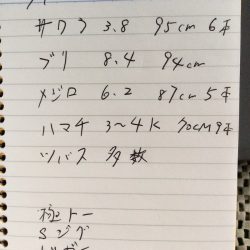 サワラ 3.8 95cm 6本
ブリ 8.4 94cm
メジロ 6.2 87cm 5本
ハマチ 3〜4K 70CM 9本
ツバス 多数
極トー
Sジグ